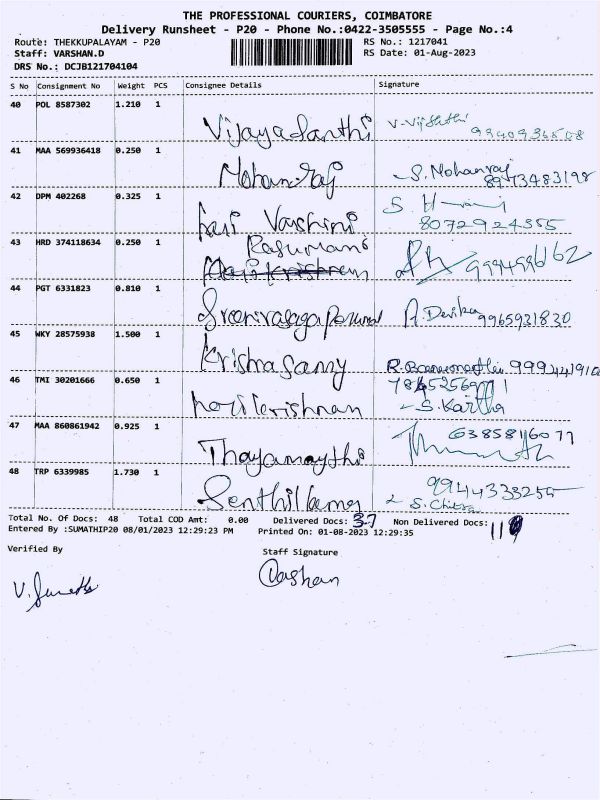 THE PROFESSIONAL COURIERS, COIMBATORE
Delivery Runsheet - P20 - Phone No.:0422-3505555 - Page No.:4
Route: THEKKUPALAYAM - P20 RS No.: 1217041
Staff: VARSHAN.D RS Date: 01-Aug-2023
DRS No.: DCJB121704104
S No Consignment No Weight PCS Consignee Details Signature
40 POL 8587302 1.210 1
Vijayashanthi
41 MAA 569936418 0.250 1
Mohanraj S. Mohanraj
8973483198
42 DPM 402268 0.325 1
Hari Varshini
8072924355
43 HRD 374118634 0.250 1
Rasumani
44 PGT 6331823 0.810 1
9965931830
45 WKY 28575938 1.500 1
Krishnasamy
46 TMI 30201666 0.650 1
Harikrishnan S. Kartha
47 MAA 860861942 0.925 1
6385816077
48 TRP 6339985 1.730 1
9944333255
Senthilkumar S. Chitra
Total No. Of Docs: 48 Total COD Amt: 0.00 Delivered Docs: 37 Non Delivered Docs: 11
Entered By :SUMATHIP20 08/01/2023 12:29:23 PM Printed On: 01-08-2023 12:29:35
Verified By Staff Signature
Varshan